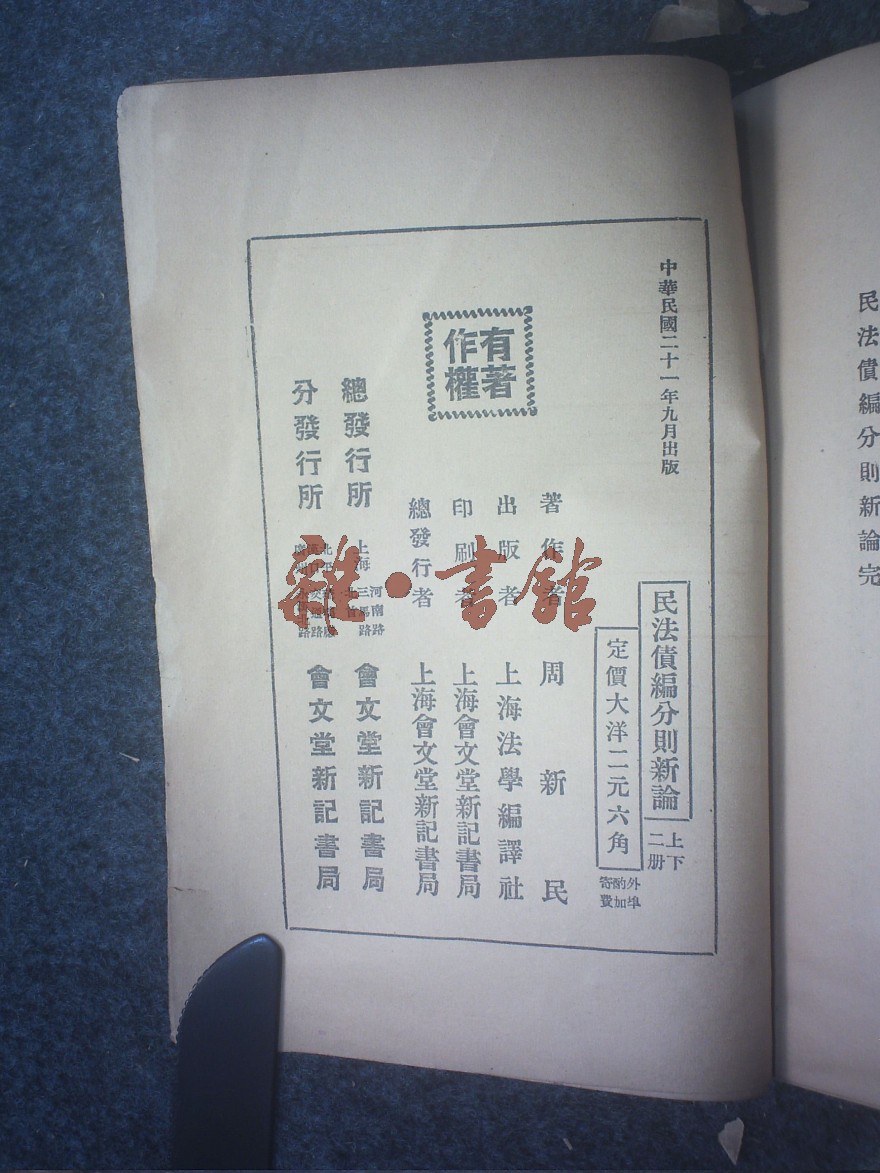 民法債編分則新論完
中華民國二十一年九月出版
民法債編分則新論
上下
二册
定價大洋二元六角
外埠
酌加
寄費
著作者 周新民
出版者 上海法學編譯社
印刷者 上海會文堂新記書局
總發行者 上海會文堂新記書局
有著
作權
總發行所 上海 河南路 三馬路 會文堂新記書局
分發行所 會文堂新記書局
雜·書館